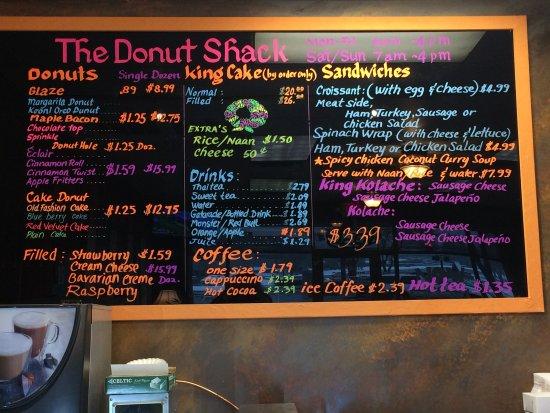 The Donut Shack
Sat/Sun 7am - 4pm
Donuts Single Dozen
Glaze .89 $8.99
Margarita Donut
Donut
Maple Bacon $1.25 $12.75
Chocolate Top
Sprinkle
Donut Hole $1.25 Doz.
Eclair
Cinnamon Roll
Cinnamon Twist $1.59 $15.99
Apple Fritters
Cake Donut
Old Fashion Cake $1.25 $12.75
Blue berry Cake
Red Velvet Cake
Plain Cake
Filled: Strawberry $1.59
Cream Cheese $15.99
Bavarian Creme Doz.
Raspberry
King Cake (by order only)
Normal:
Filled:
Extra's
Rice/Naan $1.50
Cheese 50¢
Drinks:
Thai tea $2.79
Sweet tea $2.09
Water $1.09
Gatorade/Bottled Drink $1.89
Monster/Red Bull
Orange/Apple $1.89
Juice $1.29
Coffee:
One Size $1.79
Cappuccino $2.39
Hot Cocoa $2.39
Ice Coffee $2.39
Hot tea $1.35
Sandwiches
Croissant: (with egg & cheese) $4.99
Meat side,
Ham, Turkey, Sausage or
Chicken Salad
Spinach Wrap (with cheese & lettuce)
Ham, Turkey or Chicken Salad $4.99
*Spicy Chicken Coconut Curry Soup
Serve with Naan, Rice & water $7.99
King Kolache: Sausage Cheese
Sausage Cheese Jalapeño
Kolache:
$3.39
Sausage Cheese
Sausage Cheese Jalapeño
CELTIC